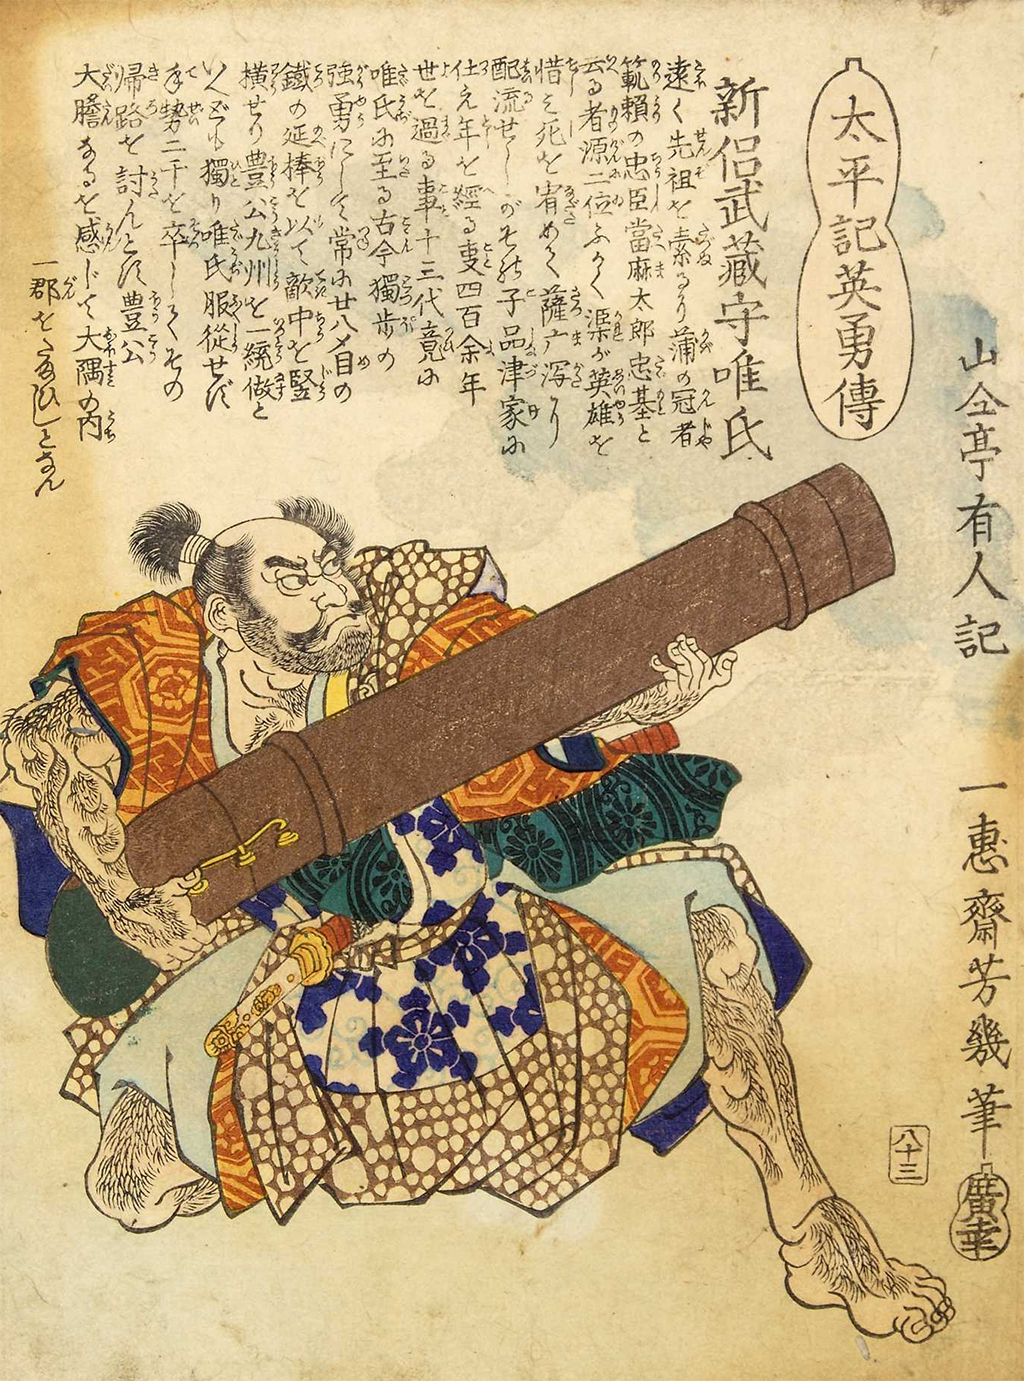 太平記英勇傳
新侶武藏守唯氏
遠く先祖を素るり蒲の冠者
範頼の忠臣當麻太郎忠基と
云る者源二位ふかく渠が英雄を
惜み死を宥めて薩广泻り
配流せしがその子品津家に
仕え年を經る事四百余年
世を過る事十三代竟に
唯氏に至る古今獨歩の
強勇にして常に廿八〆目の
鐵の延棒を以て敵中を竪
横せり豊公九州を一統做と
いへども獨り唯氏服從せず
手勢二千を卒してその
帰路を討んとす豊公
大膽なるを感じて大隅の内
一郡をたまひしとなん
山仝亭有人記
一惠齋芳幾筆
廣幸
八十三